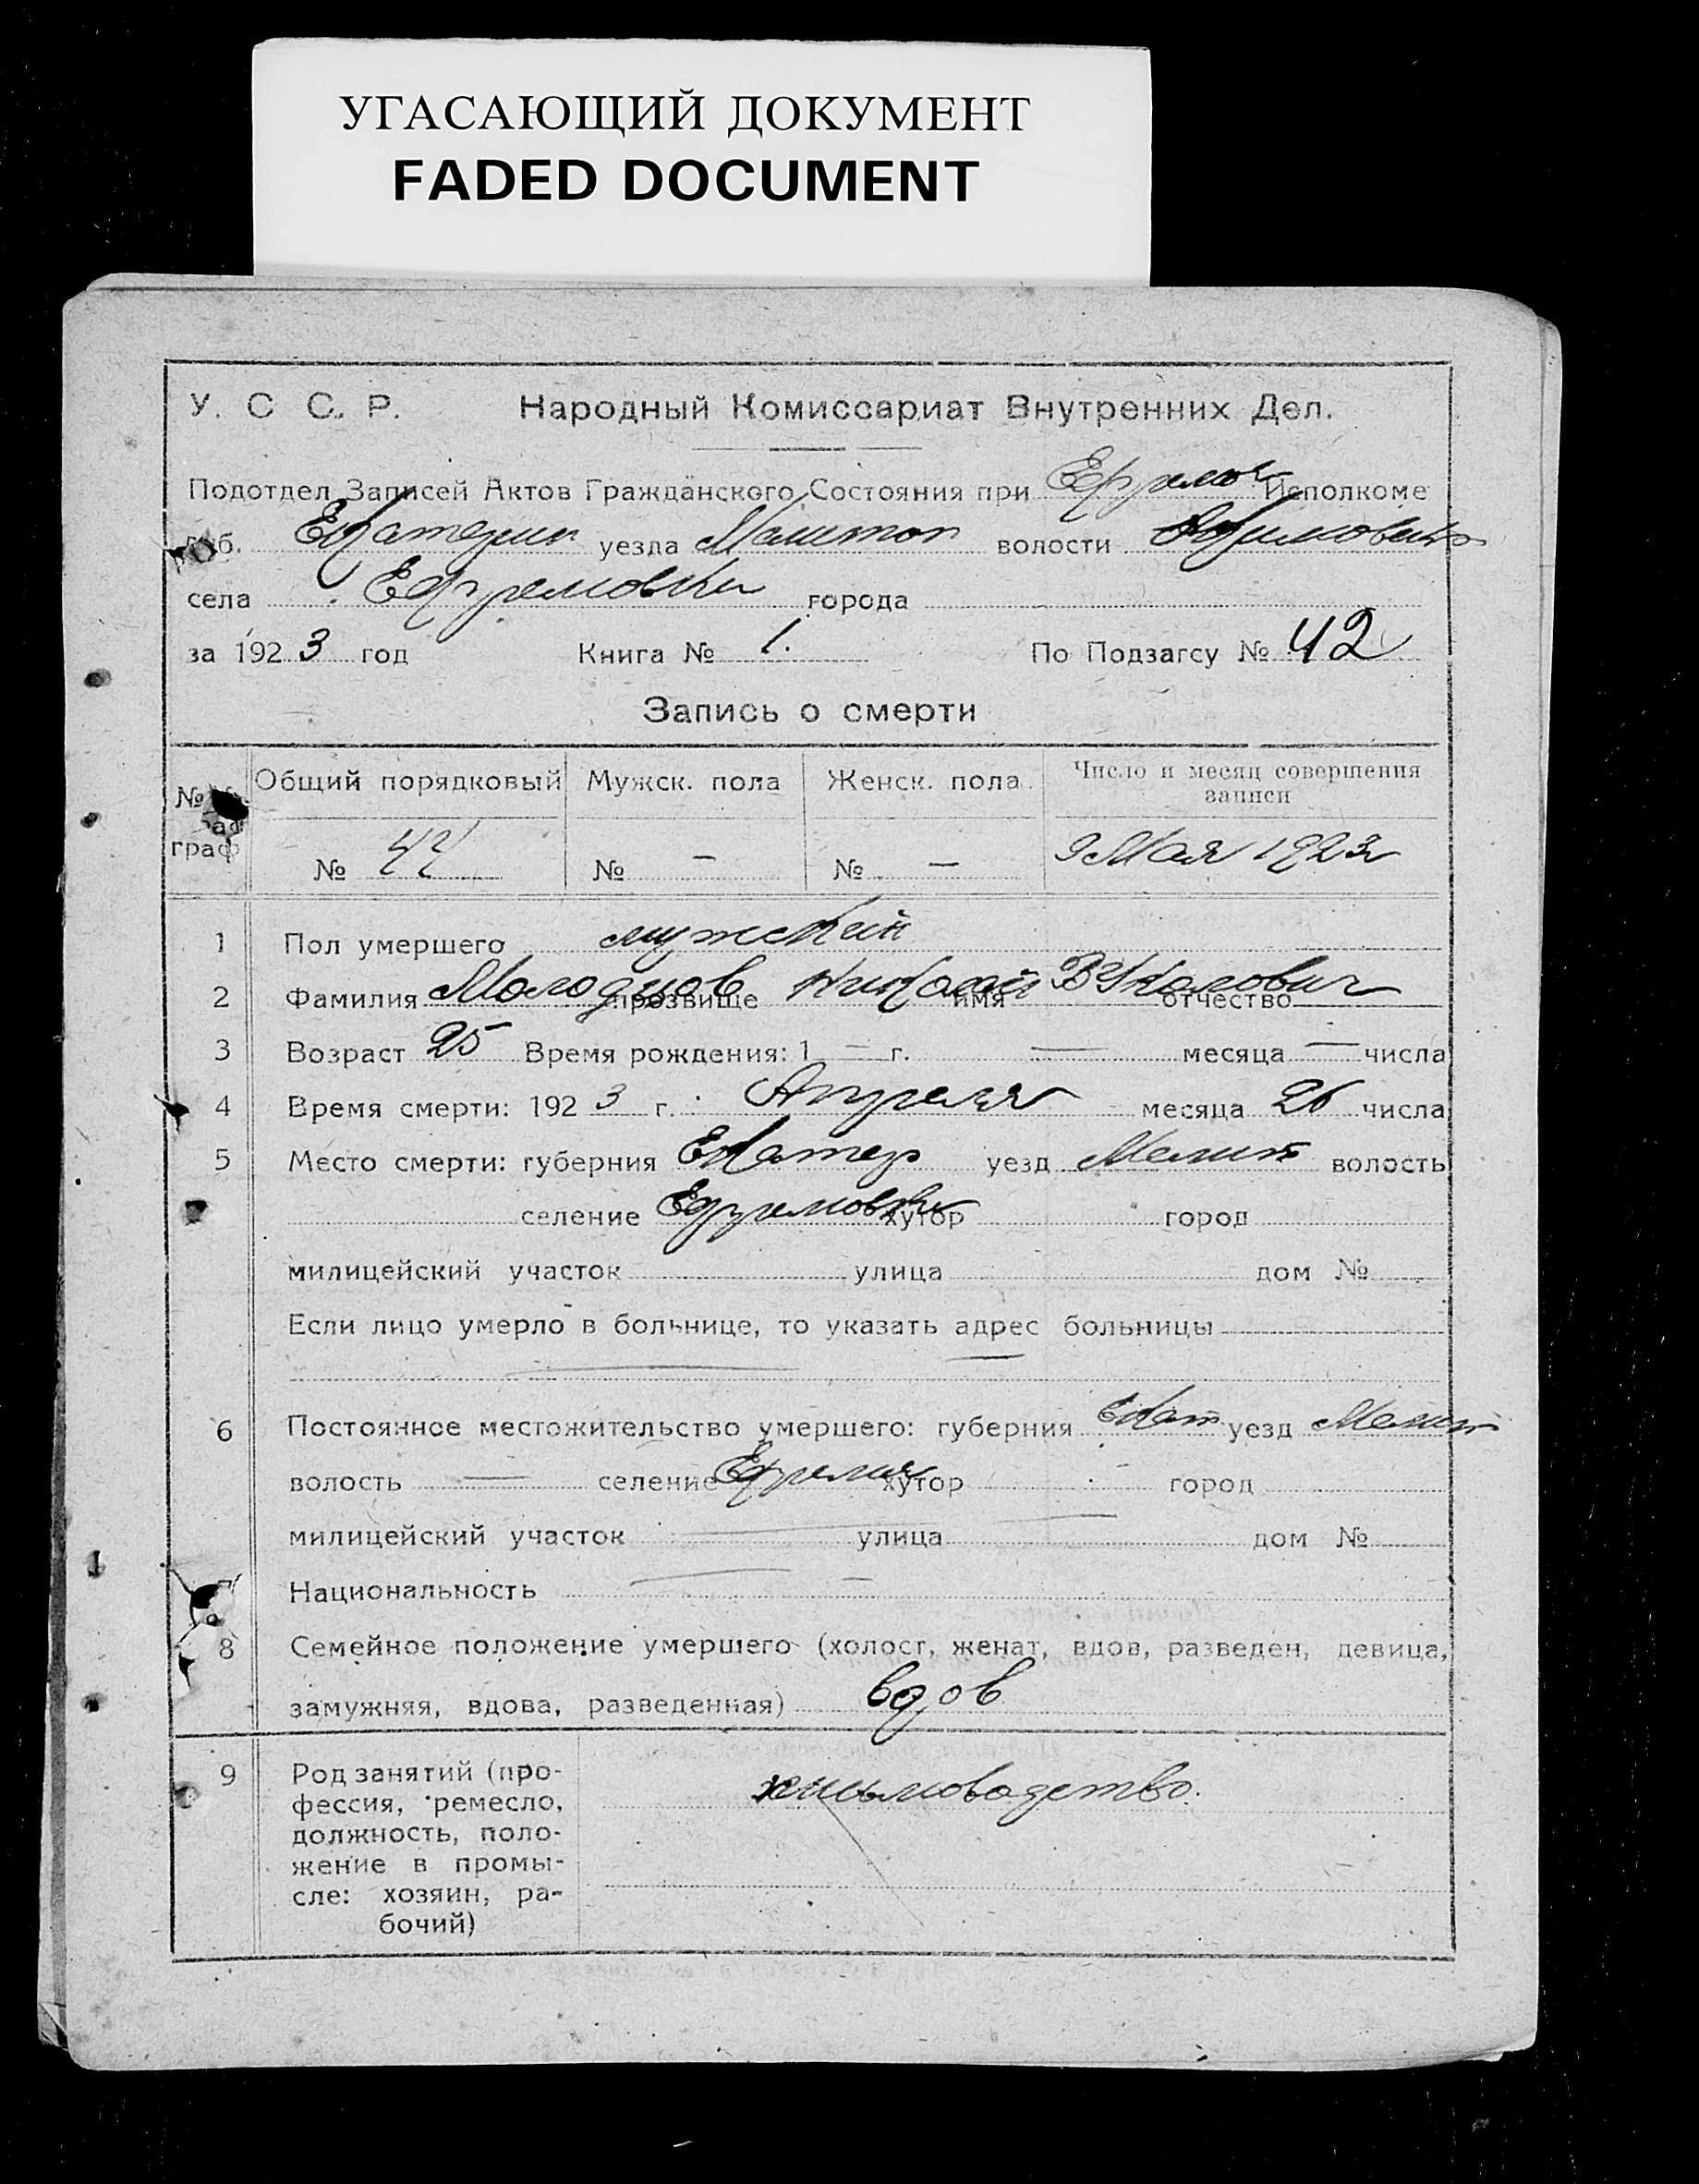 УГАСАЮЩИЙ ДОКУМЕНТ
FADED DOCUMENT
У. С С. Р. Народный Комиссариат Внутренних Дел.
Подотдел Записей Актов Гражданского Состояния при Ефремов Исполкоме
Губ. Екатерин уезда Мелитоп волости
села Ефремовки города
за 1923 год Книга № 1. По Подзагсу № 42
Запись о смерти
№ граф Общий порядковый Мужск. пола Женск. пола. Число и месяц совершения записи
№ № – № – 9 Мая 1923 г
1 Пол умершего мужской
2 Фамилия Молодцов прозвище Николай имя отчество
3 Возраст 25 Время рождения: 1 – г. — месяца — числа
4 Время смерти: 1923 г. Апреля месяца 26 числа
5 Место смерти: губерния Екатер уезд Мелит волость
селение Ефремовка хутор город
милицейский участок улица дом №
Если лицо умерло в больнице, то указать адрес больницы
6 Постоянное местожительство умершего: губерния Екат уезд Мелит
волость — селение хутор город
милицейский участок улица дом №
7 Национальность —
8 Семейное положение умершего (холост, женат, вдов, разведен, девица,
замужняя, вдова, разведенная) вдов
9 Род занятий (про-
фессия, ремесло,
должность, поло-
жение в промы-
сле: хозяин, ра-
бочий)